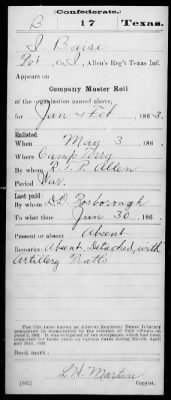 (Confederate.)
B 17 Texas.
J. Baise
Pvt, Co. I, Allen's Reg't Texas Inf.
Appears on
Company Muster Roll
of the organization named above,
for Jan & Feb, 1863.
Enlisted:
When May 3, 186 .
Where Camp Terry
By whom R. T. P. Allen
Period War.
Last paid:
By whom D. D. Rosborough
To what time Jun 30, 186 .
Present or absent Absent
Remarks: Absent, Detached, with
Artillery
Book mark:
L. H. Martin
(642) Copyist.